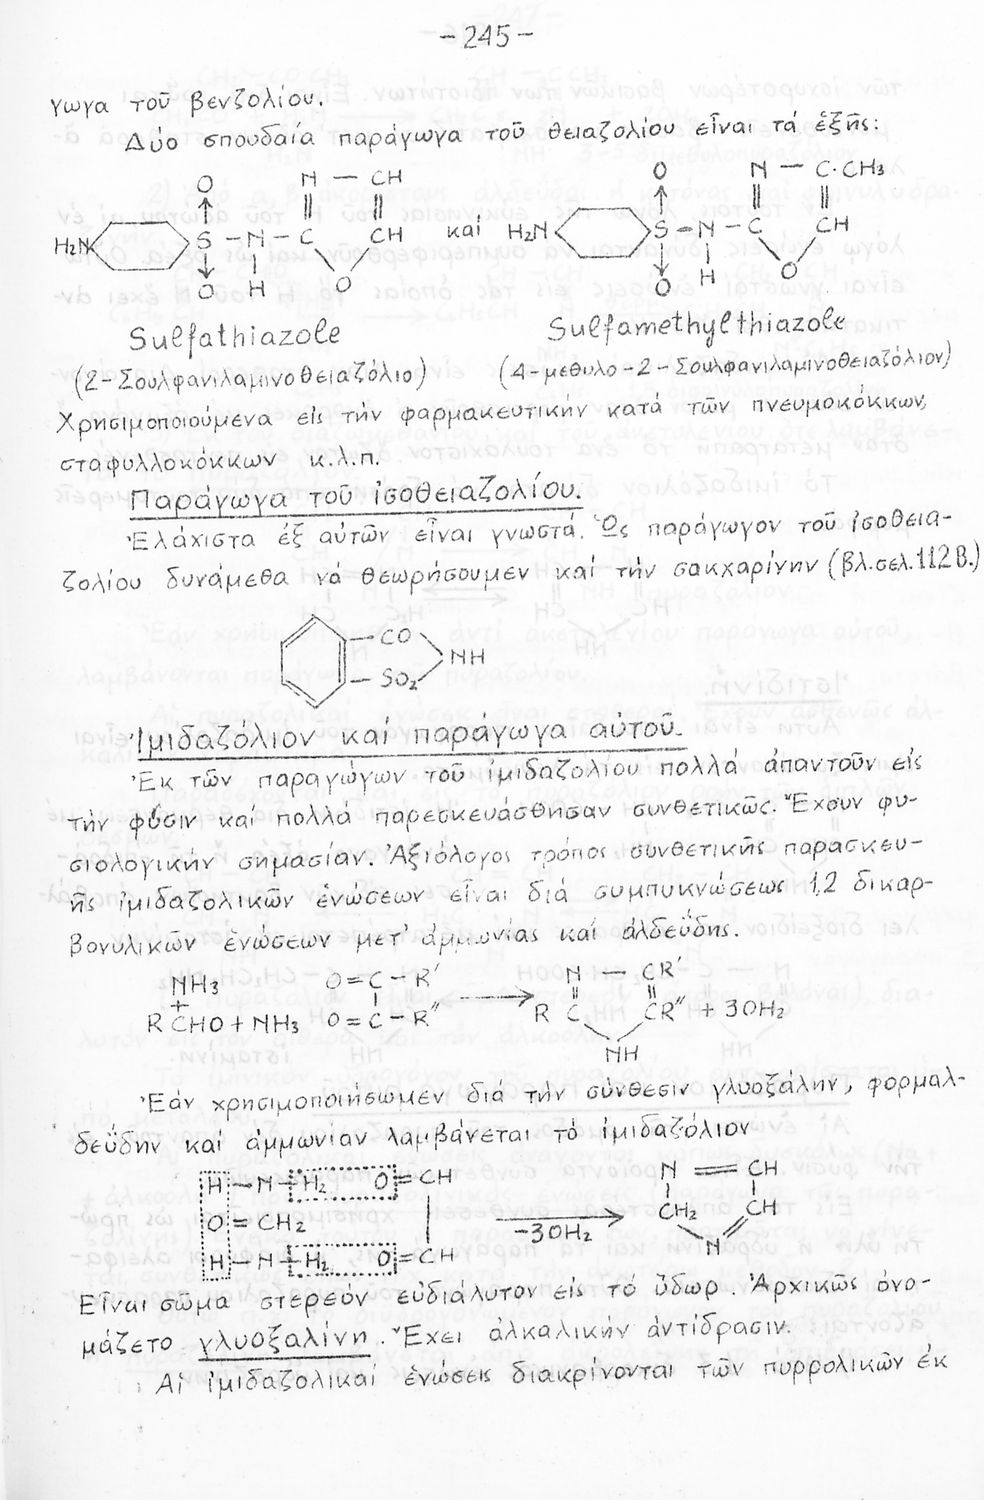 -245-
γωγα τοῦ βενζολίου.
Δύο σπουδαία παράγωγα τοῦ θειαζολίου εἶναι τά ἑξῆς:
O N — CH O N — C·CH₃
H₂N S – N – C CH καί H₂N S – N – C CH
O H O O H O
Sulfathiazole Sulfamethylthiazole
(2-Σουλφανιλαμινοθειαζόλιο) (4-μεθυλο-2-Σουλφανιλαμινοθειαζόλιον)
Χρησιμοποιούμενα εἰς τήν φαρμακευτικήν κατά τῶν πνευμοκόκκων,
σταφυλλοκόκκων κ.λ.π.
Παράγωγα τοῦ ἰσοθειαζολίου.
Ἐλάχιστα ἐξ αὐτῶν εἶναι γνωστά. Ὡς παράγωγον τοῦ ἰσοθεια-
ζολίου δυνάμεθα νά θεωρήσουμεν καί τήν σακχαρίνην (βλ.σελ.112Β.)
— CO
NH
— SO₂
Ἰμιδαζόλιον καί παράγωγα αὐτοῦ.
Ἐκ τῶν παραγώγων τοῦ ἰμιδαζολίου πολλά ἀπαντοῦν εἰς
τήν φύσιν καί πολλά παρεσκευάσθησαν συνθετικῶς. Ἔχουν φυ-
σιολογικήν σημασίαν. Ἀξιόλογος τρόπος συνθετικῆς παρασκευ-
ῆς ἰμιδαζολικῶν ἑνώσεων εἶναι διά συμπυκνώσεως 1,2 δικαρ-
βονυλικῶν ἑνώσεων μετ' ἀμμωνίας καί ἀλδεΰδης.
NH₃ O=C–R′ N — CR′
+
RCHO + NH₃ O=C–R″ R C CR″ + 3OH₂
NH
Ἐάν χρησιμοποιήσωμεν διά τήν σύνθεσιν γλυοξάλην, φορμαλ-
δεΰδην καί ἀμμωνίαν λαμβάνεται τό ἰμιδαζόλιον
H–N–H₂ O=CH N = CH
O=CH₂ -3OH₂ CH₂ CH
H–N–H₂ O=CH N
Εἶναι σῶμα στερεόν εὐδιάλυτον εἰς τό ὕδωρ. Ἀρχικῶς ὀνο-
μάζετο γλυοξαλίνη. Ἔχει ἀλκαλικήν ἀντίδρασιν.
Αἱ ἰμιδαζολικαί ἑνώσεις διακρίνονται τῶν πυρρολικῶν ἐκ